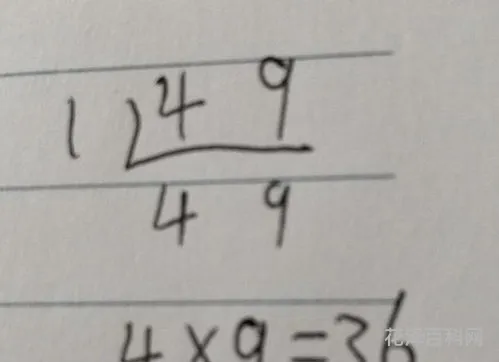 1 4 9
4 9
4×9=36
花泽百科网